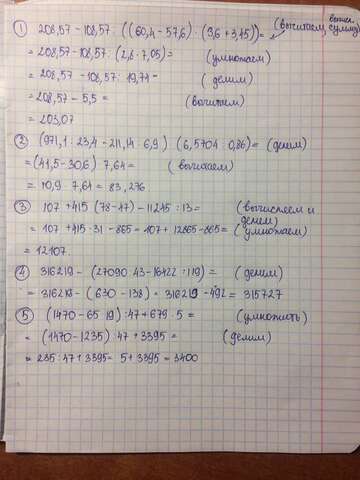 ① 208,57 - 108,57 : ((60,4 - 57,6) · (3,6 + 3,45)) = (вычитаем, сумму)
= 208,57 - 108,57 : (2,8 · 7,05) = (умножаем)
= 208,57 - 108,57 : 19,74 = (делим)
= 208,57 - 5,5 = (вычитаем)
= 203,07
② (971,1 : 23,4 - 211,14 : 6,9) (6,5704 : 0,86) = (делим)
= (41,5 - 30,6) · 7,64 = (вычитаем)
= 10,9 · 7,64 = 83,276
③ 107 + 415 (78 - 47) - 11245 : 13 = (вычисляем и делим)
= 107 + 415 · 31 - 865 = 107 + 12865 - 865 = (умножаем)
= 12107.
④ 316219 - (27090 43 - 16422 : 119) = (делим)
= 316219 - (630 - 138) = 316219 - 492 = 315727
⑤ (1470 - 65 19) : 47 + 679 · 5 = (умножить)
= (1470 - 1235) : 47 + 3395 = (делим)
= 235 : 47 + 3395 = 5 + 3395 = 3400